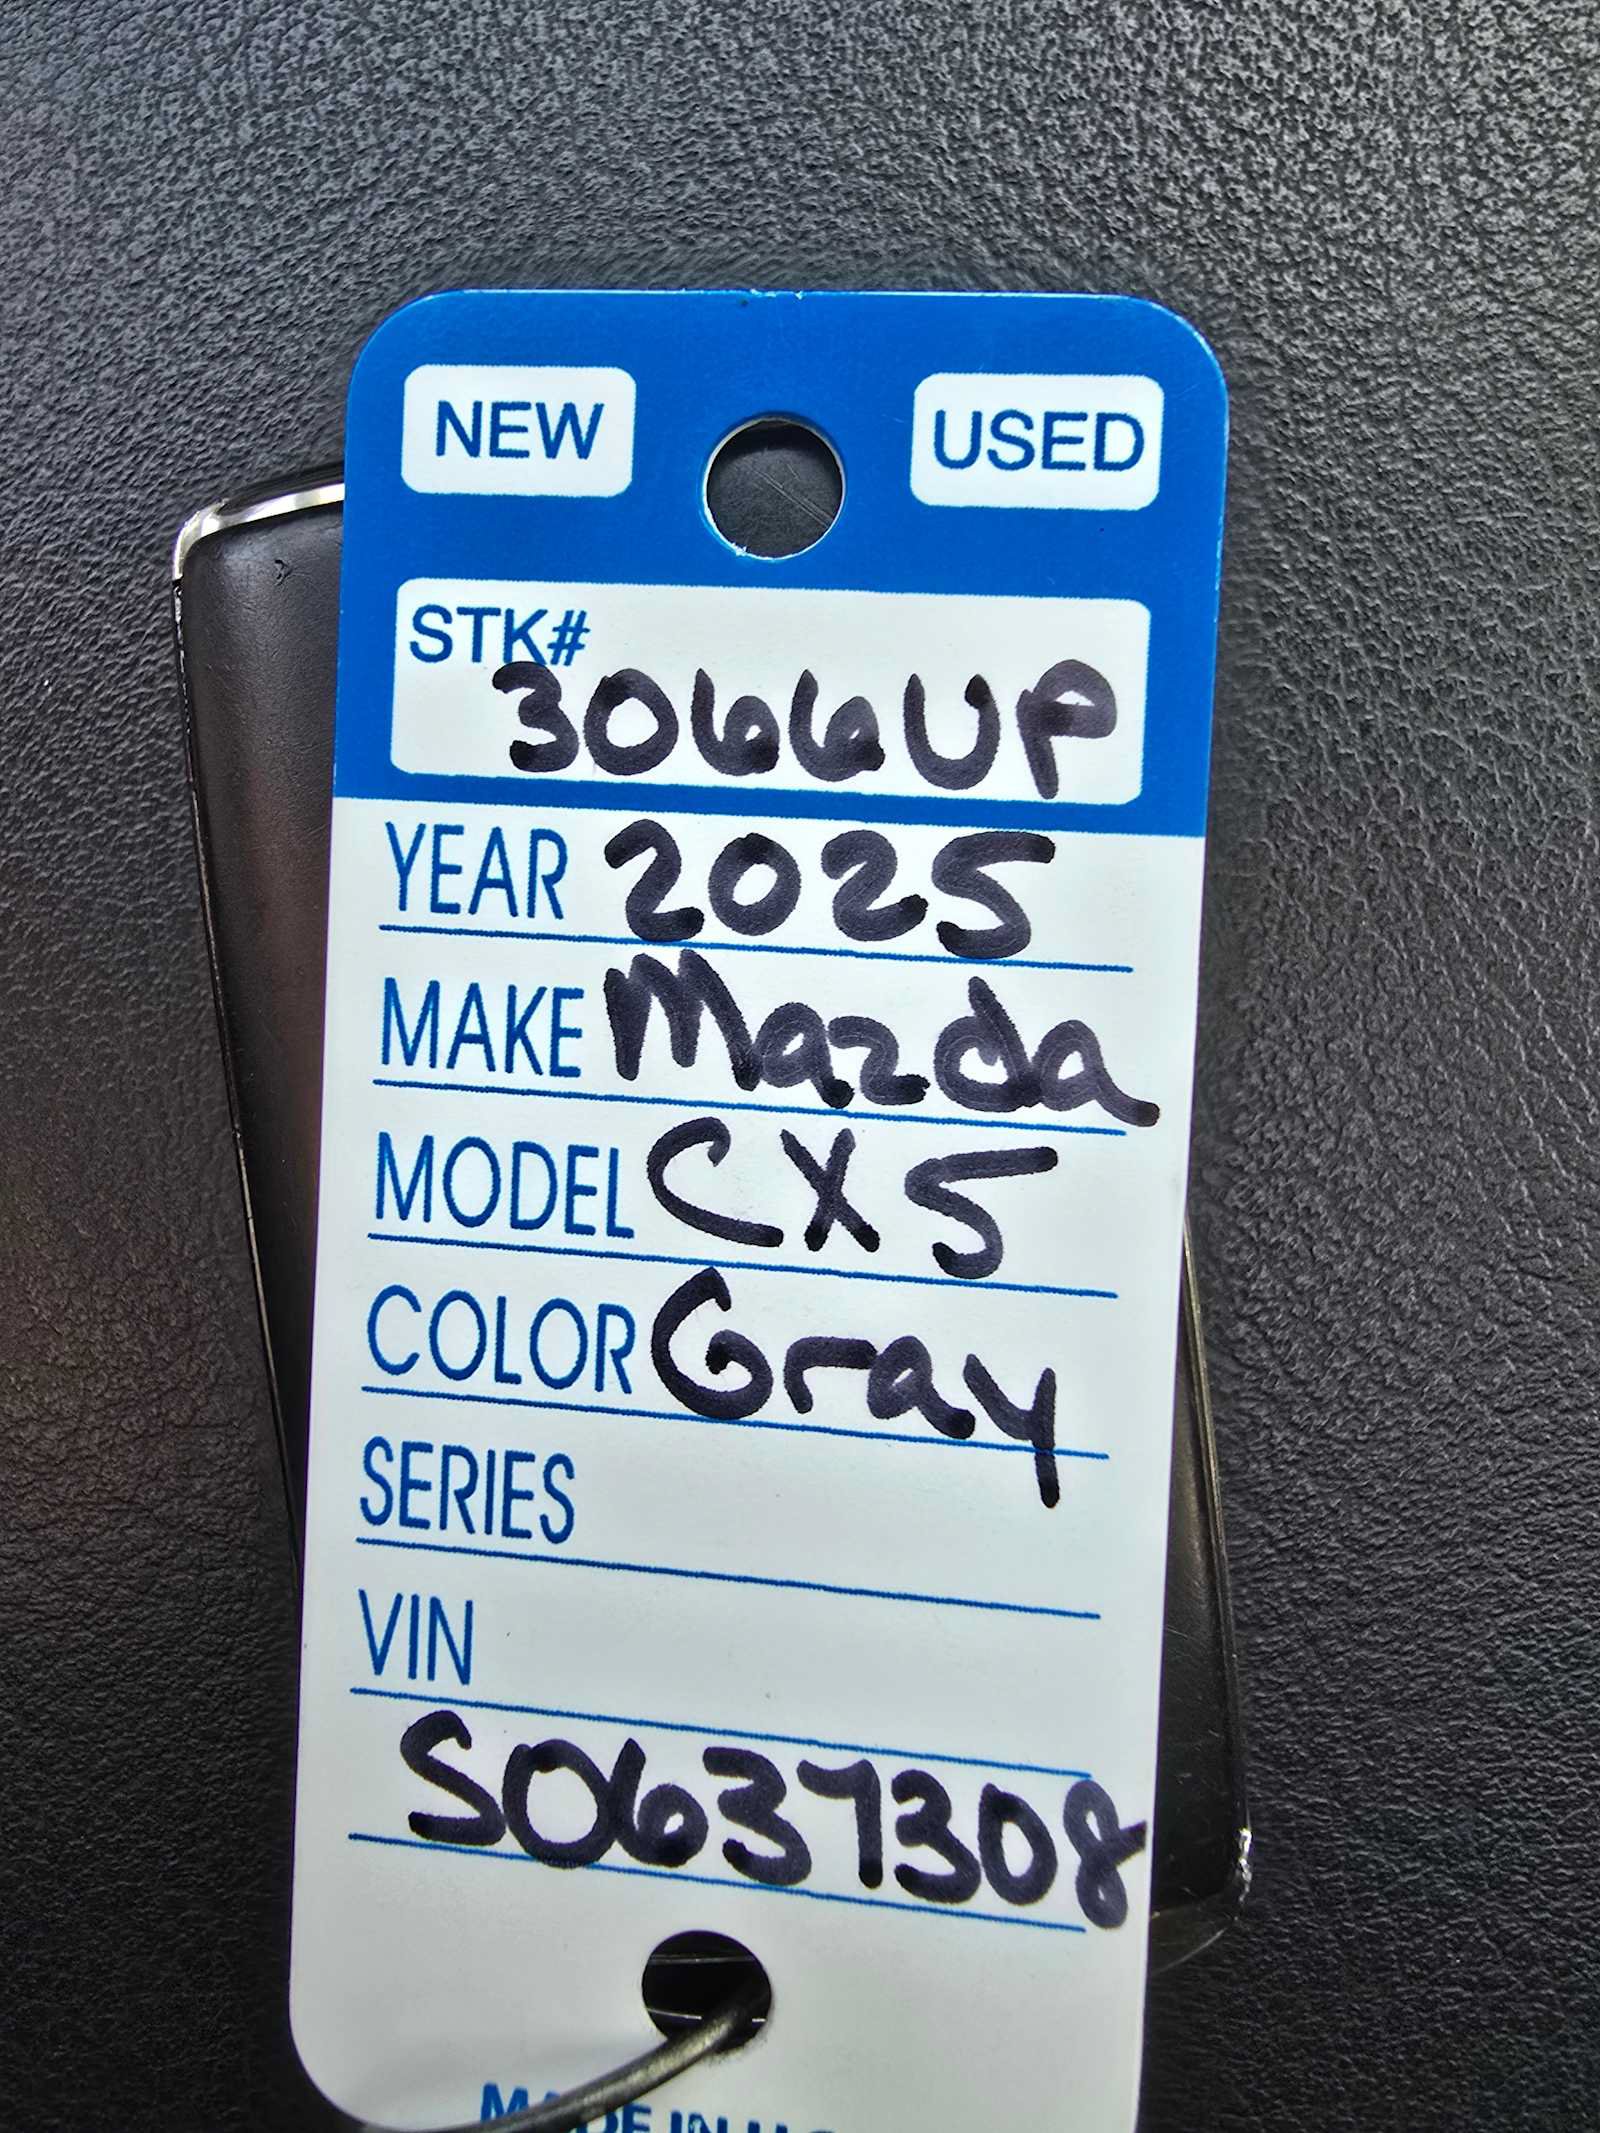 NEW USED
STK#
3066UP
YEAR 2025
MAKE Mazda
MODEL CX5
COLOR Gray
SERIES
VIN
S0637308
MADE IN U.S